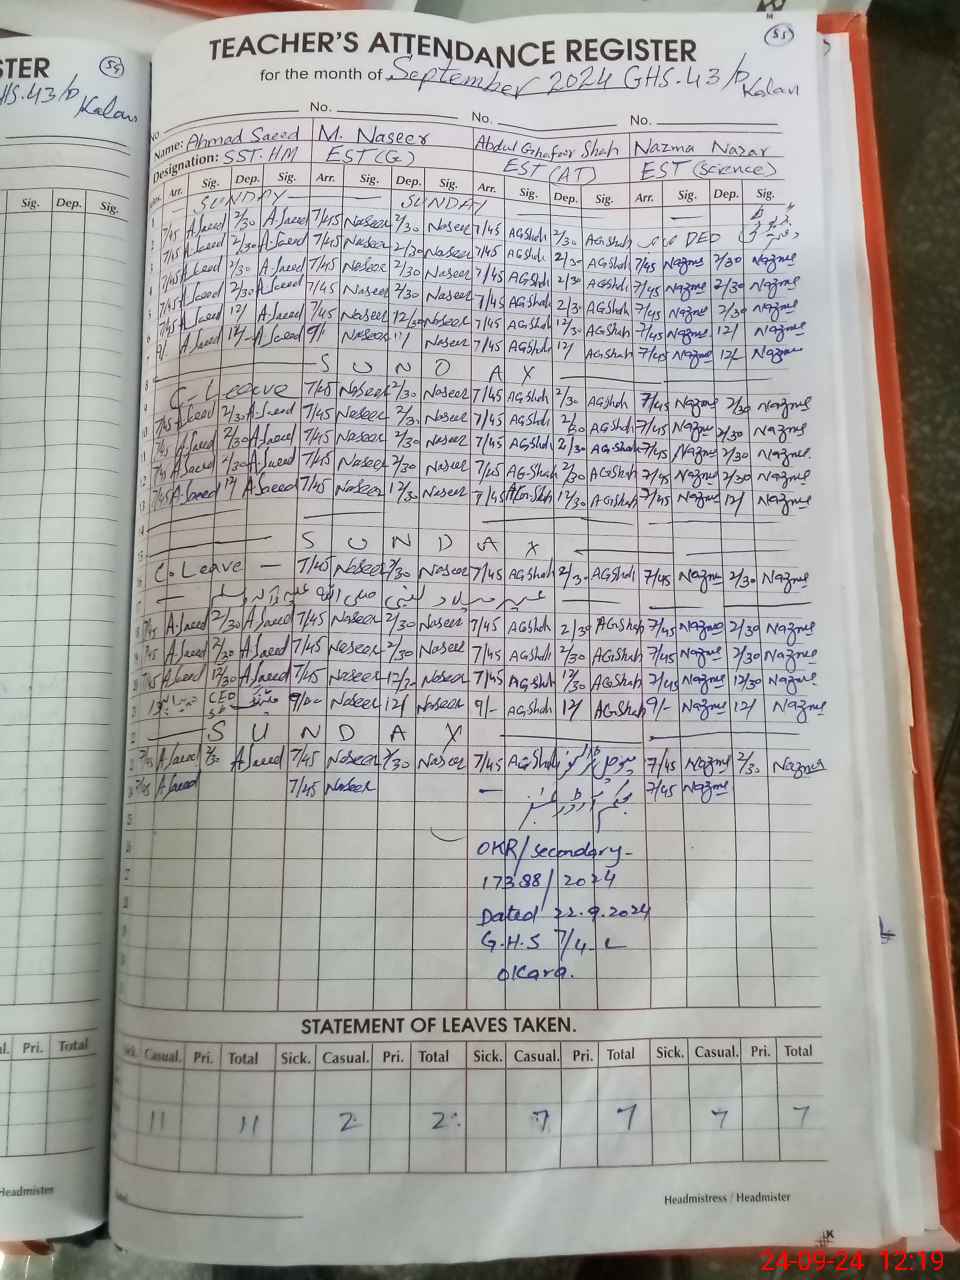 STER
54
HS.43/D
Kalan
Sig. Dep. Sig.
al. Pri. Total
Headmister
55
TEACHER'S ATTENDANCE REGISTER
for the month of September 2024 GHS.43/D
Kalan
No. No. No. No.
Name: Ahmad Saeed M. Naseer Abdul Ghafoor Shah Nazma Nazar
Designation: SST.HM EST(G) EST(AT) EST(Science)
Arr. Sig. Dep. Sig. Arr. Sig. Dep. Sig. Arr. Sig. Dep. Sig. Arr. Sig. Dep. Sig.
SUNDAY SUNDAY
7/45 A.Saeed 2/30 A.Saeed 7/45 Naseer 2/30 Naseer 7/45 AGShah 2/30 AGShah DEO
7/45 A.Saeed 2/30 A.Saeed 7/45 Naseer 2/30 Naseer 7/45 AGShah 2/30 AGShah 7/45 Nazma 2/30 Nazma
7/45 A.Saeed 2/30 A.Saeed 7/45 Naseer 2/30 Naseer 7/45 AGShah 2/30 AGShah 7/45 Nazma 2/30 Nazma
7/45 A.Saeed 2/30 A.Saeed 7/45 Naseer 2/30 Naseer 7/45 AGShah 2/30 AGShah 7/45 Nazma 2/30 Nazma
7/45 A.Saeed 12/ A.Saeed 7/45 Naseer 12/30 Naseer 7/45 AGShah 12/30 AGShah 7/45 Nazma 12/ Nazma
9/ A.Saeed 12/ A.Saeed 9/ Naseer Naseer 7/45 AGShah 12/ AGShah 7/45 Nazma 12/ Nazma
S U N D A Y
C-Leave 7/45 Naseer 2/30 Naseer 7/45 AGShah 2/30 AGShah 7/45 Nazma 2/30 Nazma
7/45 A.Saeed 2/30 A.Saeed 7/45 Naseer 2/30 Naseer 7/45 AGShah 2/30 AGShah 7/45 Nazma 2/30 Nazma
7/45 A.Saeed 2/30 A.Saeed 7/45 Naseer 2/30 Naseer 7/45 AGShah 2/30 AGShah 7/45 Nazma 2/30 Nazma
7/45 A.Saeed 2/30 A.Saeed 7/45 Naseer 2/30 Naseer 7/45 AG.Shah 2/30 AGShah 7/45 Nazma 2/30 Nazma
7/45 A.Saeed 12/ A.Saeed 7/45 Naseer 12/30 Naseer 7/45 AG.Shah 12/30 AGShah 7/45 Nazma 12/ Nazma
14
S U N D A Y
C.Leave 7/45 Naseer 2/30 Naseer 7/45 AGShah 2/30 AGShah 7/45 Nazma 2/30 Nazma
عید میلاد النبی صلی اللہ علیہ وآلہ وسلم
7/45 A.Saeed 2/30 A.Saeed 7/45 Naseer 2/30 Naseer 7/45 AGShah 2/30 AGShah 7/45 Nazma 2/30 Nazma
7/45 A.Saeed 2/30 A.Saeed 7/45 Naseer 2/30 Naseer 7/45 AGShah 2/30 AGShah 7/45 Nazma 2/30 Nazma
7/45 A.Saeed 12/30 A.Saeed 7/45 Naseer 12/30 Naseer 7/45 AGShah 12/30 AGShah 7/45 Nazma 12/30 Nazma
CEO 9/ Naseer 12/ Naseer 9/- AGShah 12/ AGShah 9/- Nazma 12/ Nazma
S U N D A Y
7/45 A.Saeed 2/30 A.Saeed 7/45 Naseer 2/30 Naseer 7/45 AGShah 7/45 Nazma 2/30 Nazma
7/45 A.Saeed 7/45 Naseer 7/45 Nazma
OKR/secondary-
17388/2024
Dated 22.9.2024
G.H.S 7/4-L
Okara.
STATEMENT OF LEAVES TAKEN.
Sick. Casual. Pri. Total Sick. Casual. Pri. Total Sick. Casual. Pri. Total Sick. Casual. Pri. Total
11 11 2 2 7 7 7 7
Headmistress / Headmister
24-09-24 12:19